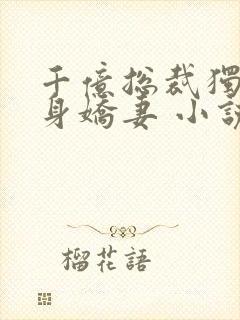 千億總裁獨
身嬌妻 小說
榴花語